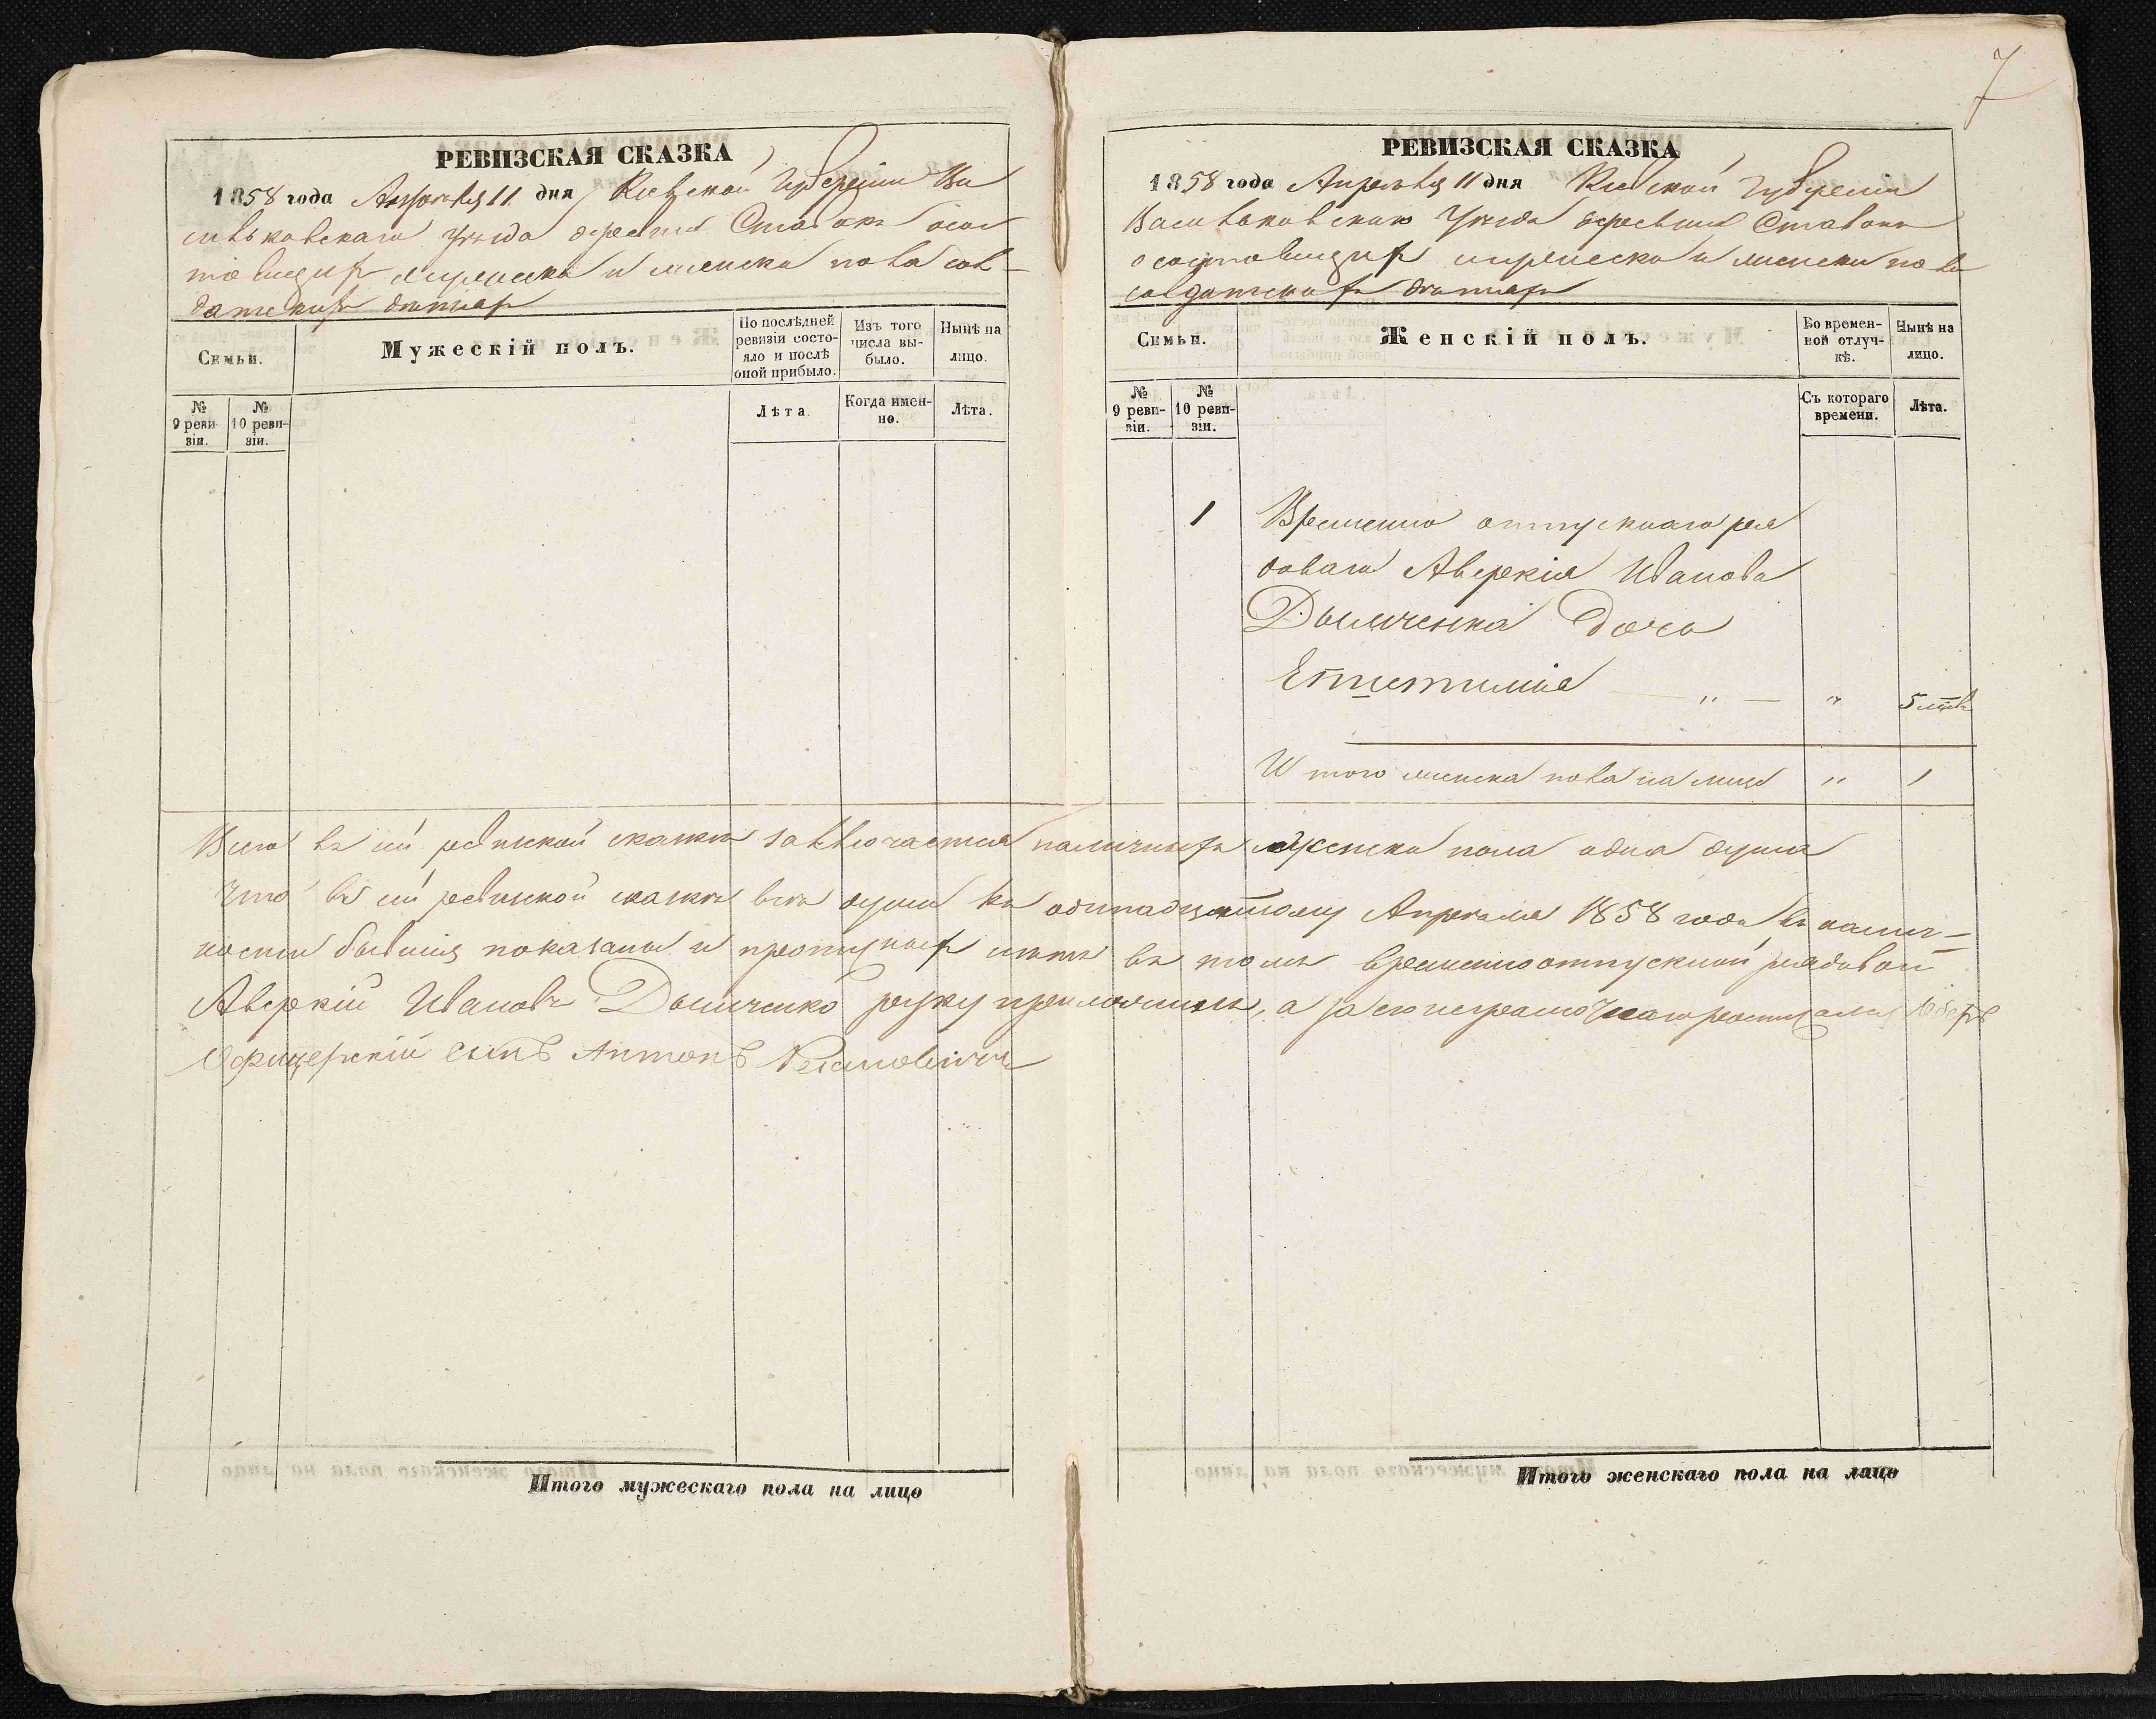 7
РЕВИЗСКАЯ СКАЗКА
1858 года Апреля 11 дня Киевской Губерніи Ва
сильковскаго Уезда деревни Ставокъ о сос
тоящихъ мужеска и женска пола сол-
датскихъ детяхъ
Семьи.
Мужескій полъ.
По послѣдней ревизіи состояло и послѣ оной прибыло.
Изъ того числа выбыло.
Нынѣ на лицо.
№ 9 ревизіи.
№ 10 ревизіи.
Лѣта.
Когда именно.
Лѣта.
РЕВИЗСКАЯ СКАЗКА
1858 года Апреля 11 дня Киевской Губерніи
Васильковскаго Уезда деревни Ставокъ
о состоящихъ мужеска и женска пола
солдатскихъ детяхъ
Семьи.
Женскій полъ.
Во временной отлучкѣ.
Нынѣ на лицо.
№ 9 ревизіи.
№ 10 ревизіи.
Съ котораго времени.
Лѣта.
1 Временно отпускнаго ря
доваго Аверкія Иванова
Дымченка дочь
Епистимія — „ — „ 5 летъ
Итого женска пола на лицо „ 1
Всего въ сей ревизской сказке заключается наличныхъ женска пола одна душа
Что въ сей ревизской сказке все души къ одинадцатому Апреля 1858 года въ налич-
ности бывшія показаны и пропускныхъ нетъ въ томъ временноотпускной рядовой
Аверкій Ивановъ Дымченко руку приложилъ, а за его неграмотнаго росписался Оберъ
Офицерскій сынъ Антонъ
Итого мужескаго пола на лицо
Итого женскаго пола на лицо